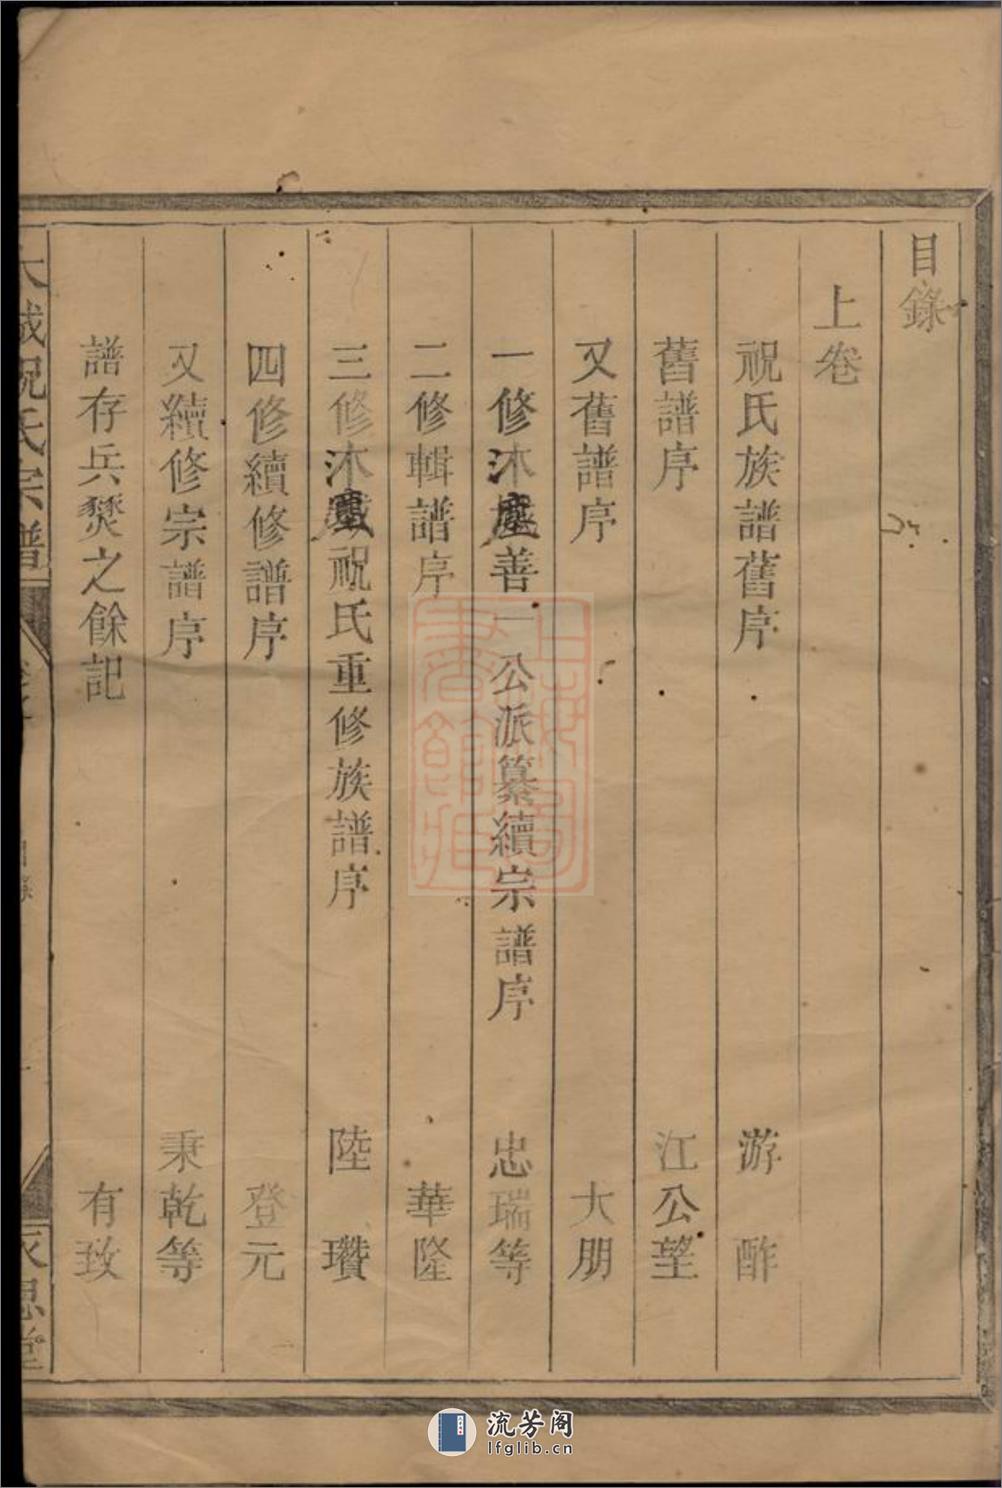 目錄
上卷
祝氏族譜舊序 游酢
舊譜序 江公望
又舊譜序 大朋
一修沐塵善一公派纂續宗譜序 忠瑞等
二修輯譜序 華隆
三修沐塵祝氏重修族譜序 陸瓚
四修續修譜序 登元
又續修宗譜序 秉乾等
譜存兵燹之餘記 有致
祝氏宗譜
思堂
流芳阁
lfglib.cn